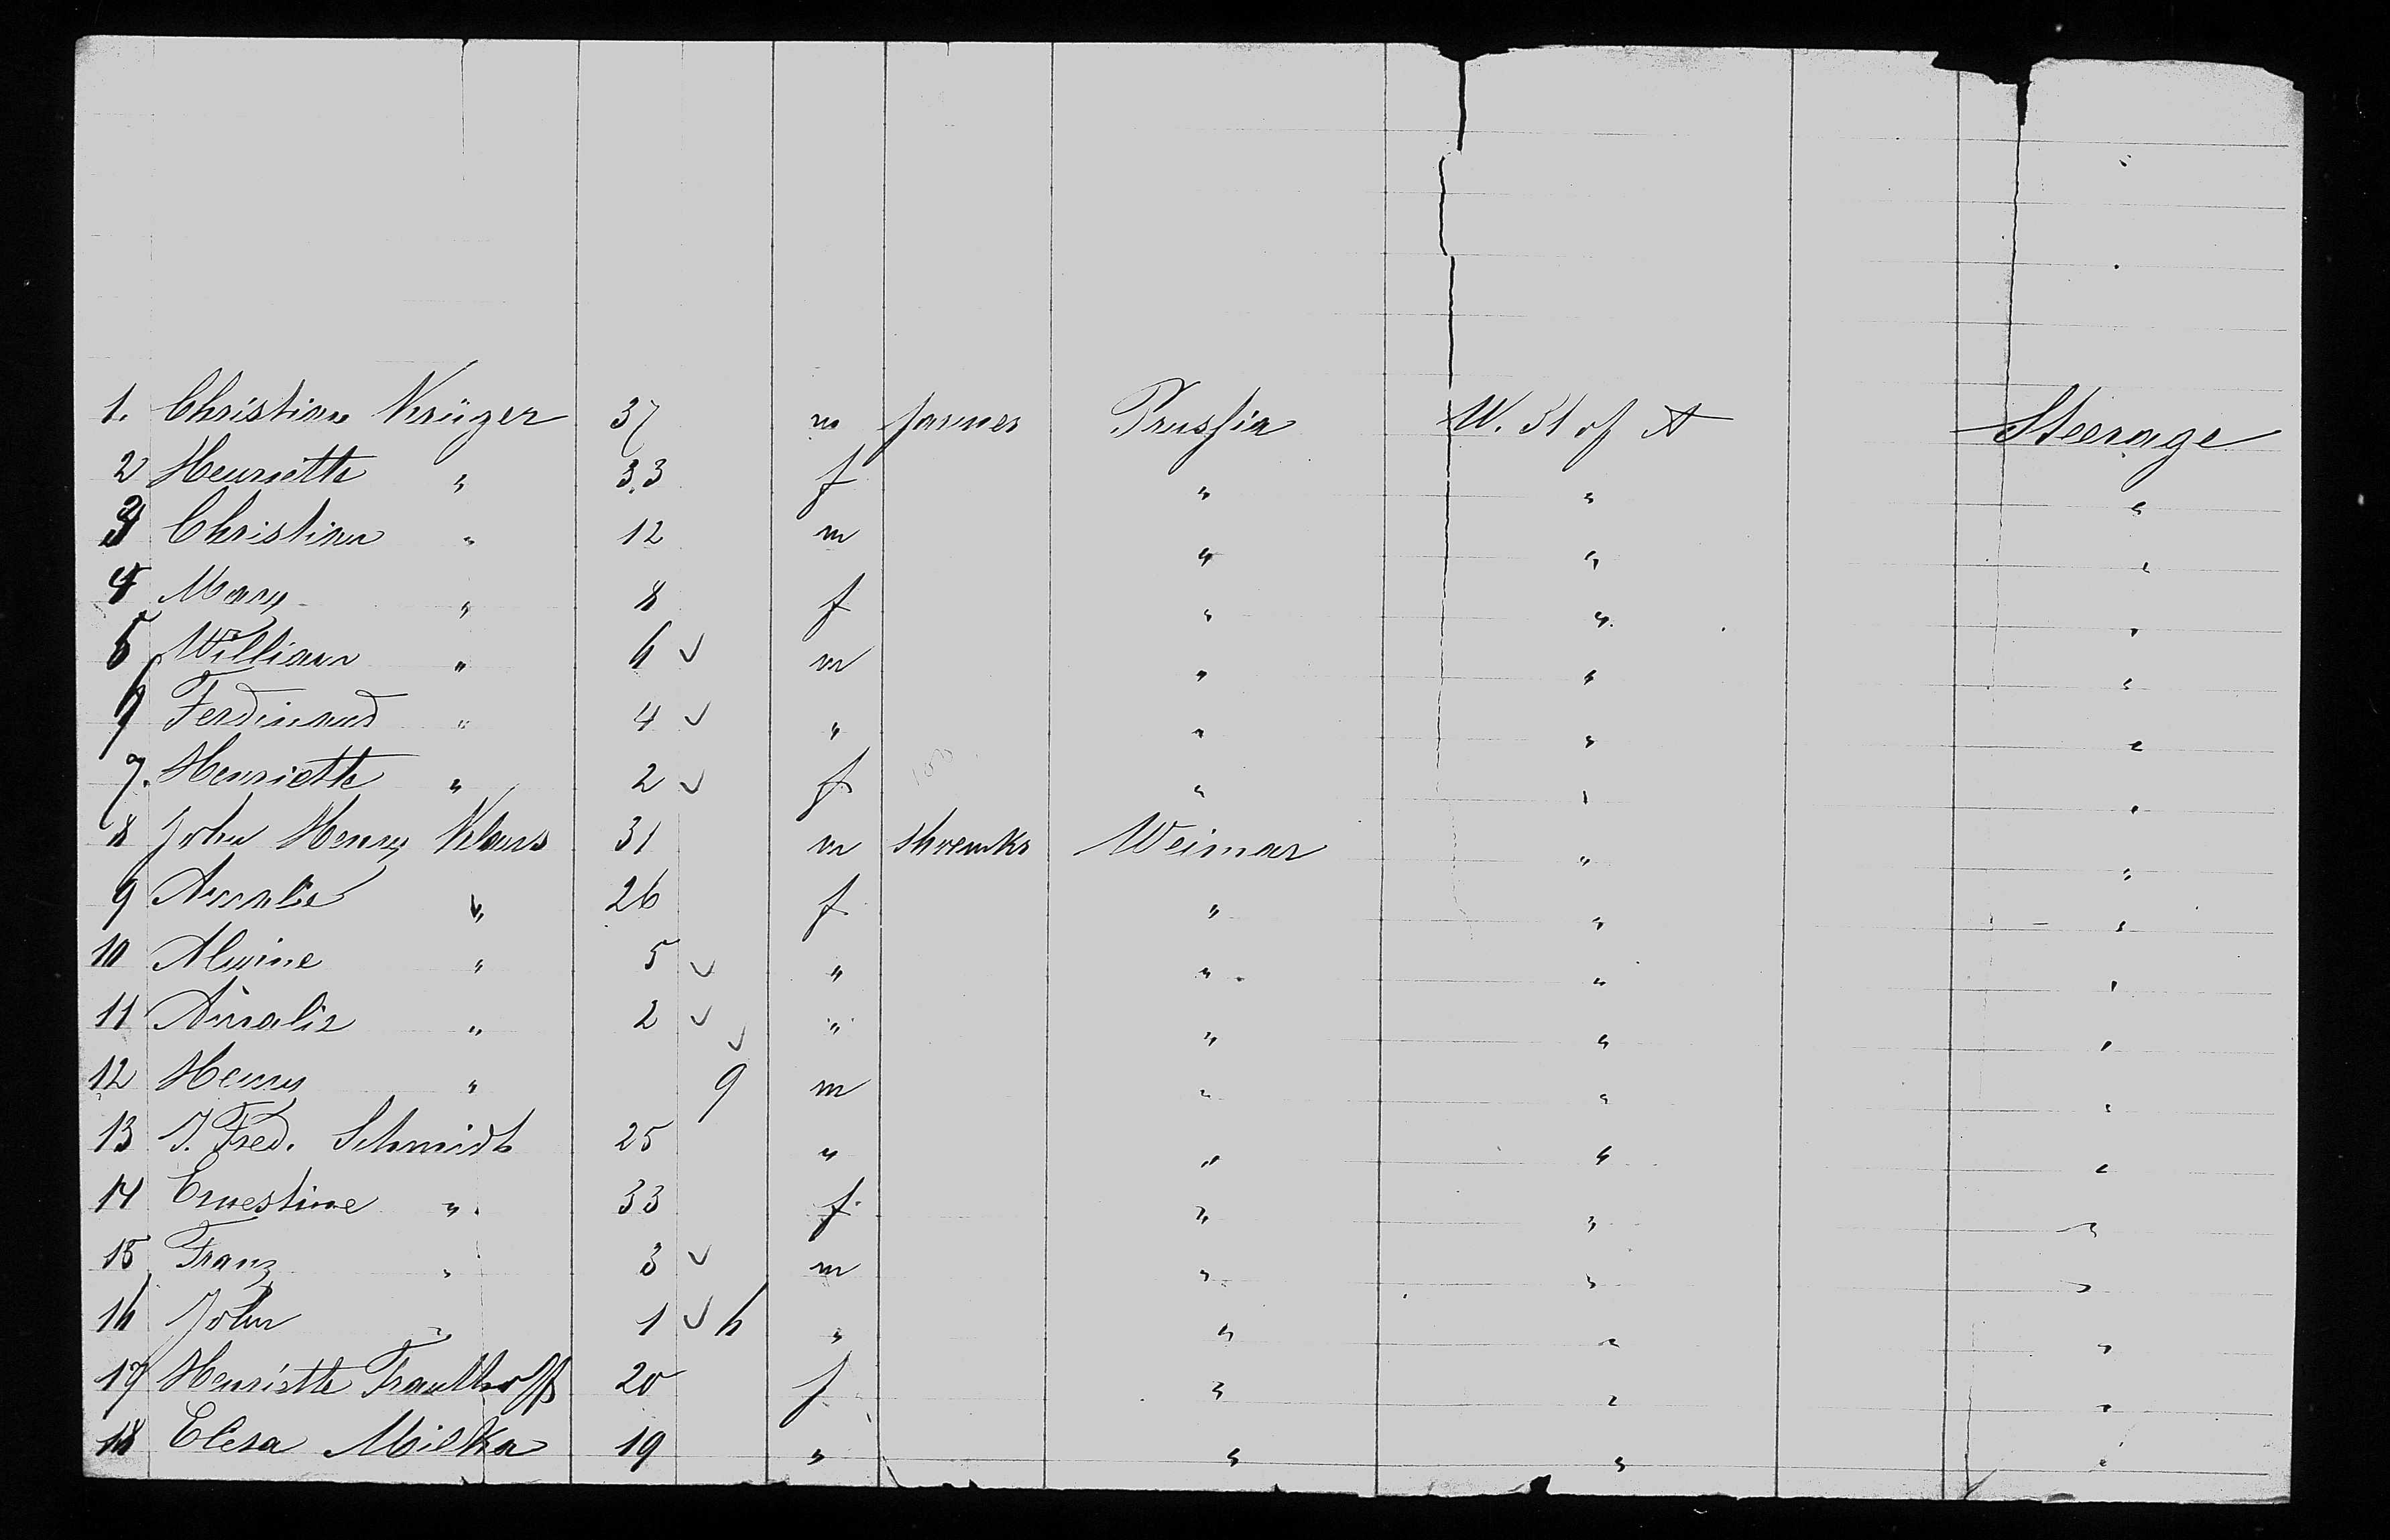 1. Christian Krüger 37 m farmer Prussia U. St of A Steerage
2 Henriette " 33 f " " "
3 Christian " 12 m " " "
4 Mary " 8 f " " "
5 William " 6 ✓ m " " "
6 Ferdinand " 4 ✓ " " " "
7. Henriette " 2 ✓ f " " "
8 John Henry Klaus 31 m Weimar " "
9 Amalie " 26 f " " "
10 Alwine " 5 ✓ " " " "
11 Amalie " 2 ✓ " " " "
12 Henry " ✓ 9 m " " "
13 J. Fred. Schmidt 25 " " " "
14 Ernestine " 33 f " " "
15 Franz " 3 ✓ m " " "
16 John " 1 ✓ 6 " " " "
17 Henriette 20 f " " "
18 Elesa Milka 19 " " " "